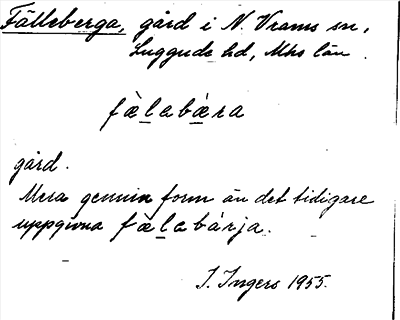 Fälleberga, gård i N. Vrams sn,
Luggude hd, Mhs län.
fæ̀labæ̀ra
gård.
Mera genuin form än det tidigare
uppgivna fæ̀labàrja.
I. Ingers 1955.